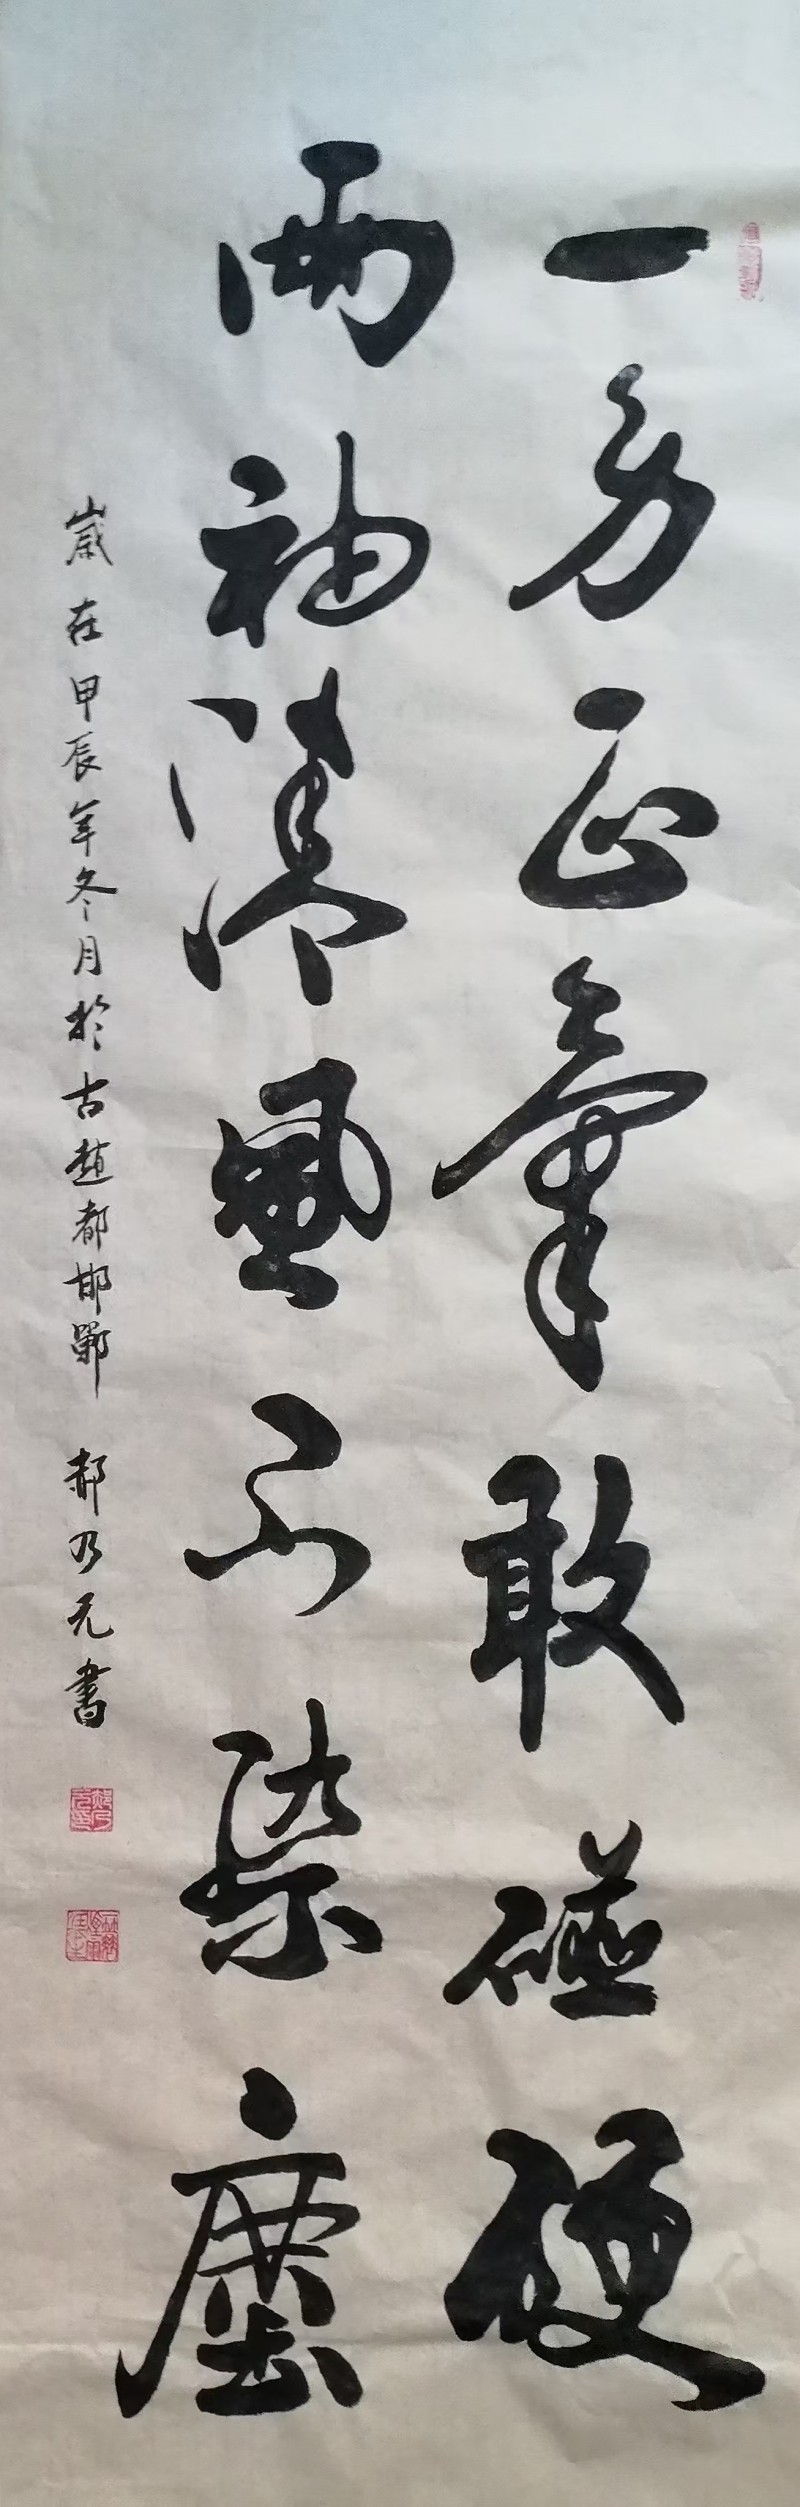 一身正氣敢碰硬
兩袖清風不染塵
歲在甲辰年冬月於古趙都邯鄲 郝乃元書